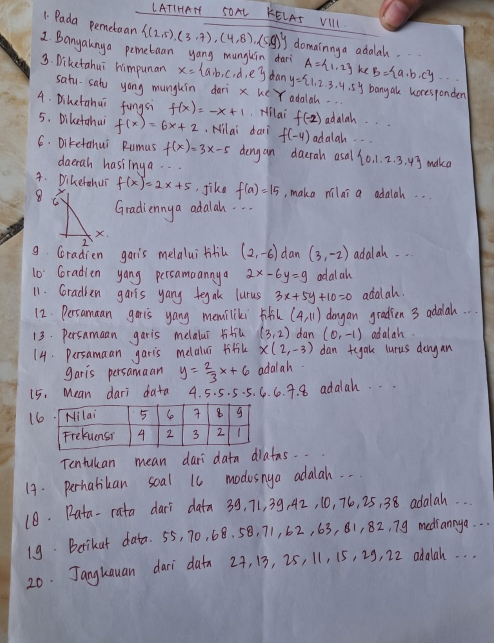 LATIHAN SOAL KELAS VIII
1. Pada pemetaan {(2,5),(3,7),(4,8),(5,9)} domainnya adalah ...
2. Banyaknya pemetaan yang mungkin dari A={1,2} ke B={a,b,c} ...
3. Diketahui himpunan x={a,b,c,d,e} dan y={1.2.3.4.5} banyak koresponden
satu-satu yang mungkin dari x ke Y adalah ...
4. Diketahui fungsi f(x) = -x+1. Nilai f(-2) adalah ...
5. Diketahui f(x) = 6x+2. Nilai dari f(-4) adalah ...
6. Diketahui Rumus f(x)=3x-5 dengan daerah asal {0.1.2.3.4} maka
daerah hasilnya ...
7. Diketahui f(x)=2x+5, jika f(a)=15, maka nilai a adalah ...
8 6 Gradiennya adalah ...
x
2
9. Gradien garis melalui titik (2,-6) dan (3,-2) adalah ...
10. Gradien yang persamaannya 2x-6y=9 adalah
11. Gradien garis yang tegak lurus 3x+5y+10=0 adalah.
12. Persamaan garis yang memiliki titik (4,11) dengan gradien 3 adalah ...
13. Persamaan garis melalui titik (3,2) dan (0,-1) adalah.
14. Persamaan garis melalui titik x(2,-3) dan tegak lurus dengan
garis persamaan y = 2/3 x + 6 adalah.
15. Mean dari data 4.5.5.5.5.6.6.7.8 adalah ...
16. Nilai 5 6 7 8 9
Frekuensi 4 2 3 2 1
Tentukan mean dari data diatas ...
17. Perhatikan soal 16 modusnya adalah ...
18. Rata-rata dari data 39,71,39,42,10,76,25,38 adalah ...
19. Berikut data. 55,70,68,58,71,62,63,81,82,79 mediannya ...
20. Jangkauan dari data 27,13,25,11,15,29,22 adalah ...